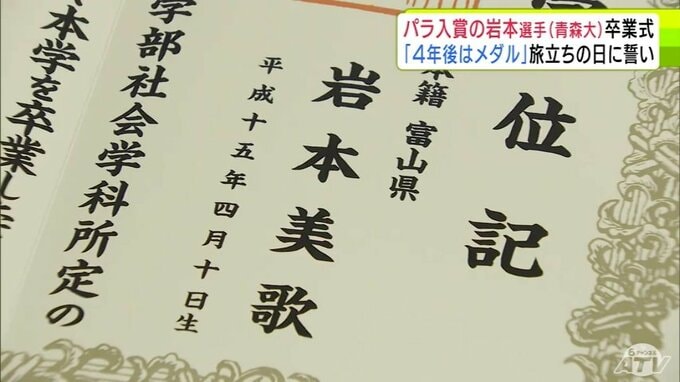 パラ入賞の岩本選手(青森大)卒業式
「4年後はメダル」旅立ちの日に誓い
位記
本籍 富山県
岩本美歌
平成十五年四月十日生
学部社会学科所定の
本学を卒業した
ATV